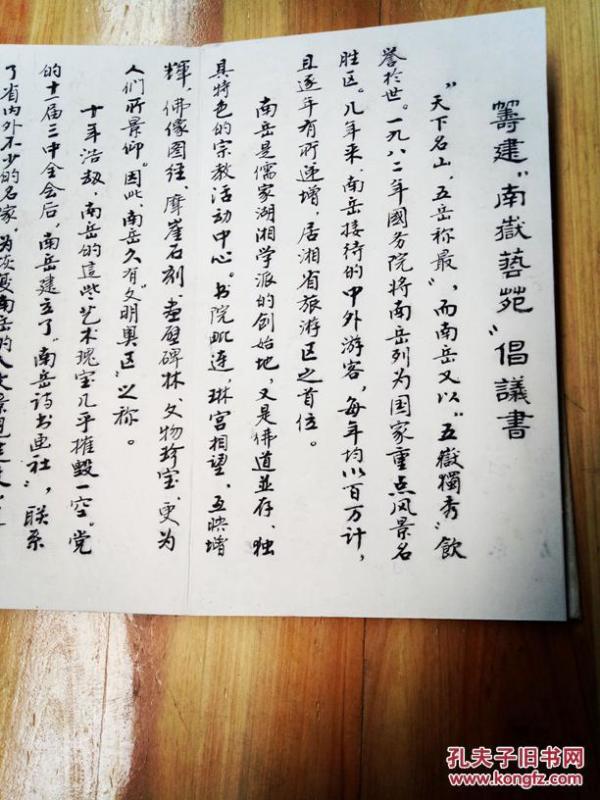 籌建“南嶽藝苑”倡議書
“天下名山，五岳称最”，而南岳又以“五嶽獨秀”飲
誉於世。一九八二年國务院将南岳列为国家重点风景名
胜区。几年来，南岳接待的中外游客，每年均以百万计，
且逐年有所递增，居湘省旅游区之首位。
南岳是儒家湖湘学派的创始地，又是佛道並存、独
具特色的宗教活动中心。书院毗连，琳宫相望，互映增
輝，佛像图经、摩崖石刻、画壁碑林、文物珍宝，更为
人们所景仰。因此，南岳久有“文明奥区”之称。
十年浩劫，南岳的這些艺术瑰宝几乎摧毁一空。党
的十一届三中全会后，南岳建立了“南岳诗书画社”，联系
了省内外不少的名家。为恢复南岳的人文景观
孔夫子旧书网
www.kongfz.com